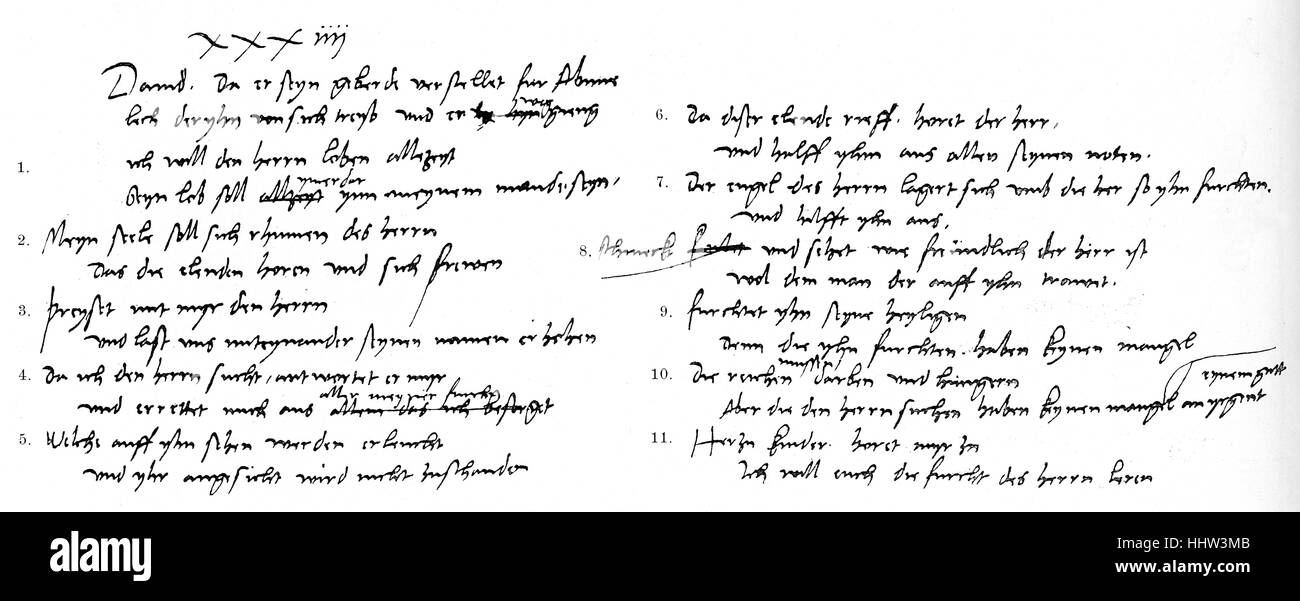 XXXiiij
Dauid. Da er seyn geberde verstellet fur Abime
lech der yhn von sich treyb und er weg gieng
1.
ich will den herrn loben allezeyt
Seyn lob soll allzeyt ymerdar ynn meynem munde seyn.
2. Meyn seele soll sich rhumen des herrn
Das die elenden horen und sich frewen
3. Preyset mit myr den herrn
und last uns miteynander seynen namen erhehen
4. Da ich den herrn sucht, antwortet er myr
aller meyner furcht
und errettet mich aus allem das ich besorget
5. Welche auff yhn sehen werden erleucht
und yhr angesicht wird nicht zuschanden
6. Da diser elende rieff. horet der herr,
und halff yhm aus allen seynen noten.
7. Der engel des herrn lagert sich umb die her so yhn furchten.
und hilfft yhn aus,
8. schmeckt und sehet wie freundlich der herr ist
wol dem man der auff yhn trawet.
9. furchtet yhn seyne heyligen
Denn die yhn furchten. haben keynen mangel
10. Die reichen mussen darben und hungern
eynem gutt
Aber die den herrn suchen haben keynen mangel an yrgent
11. Her zu kinder. horet myr zu
Ich will euch die furcht des herrn leren
alamy
alamy
Image ID: HHW3MB
www.alamy.com